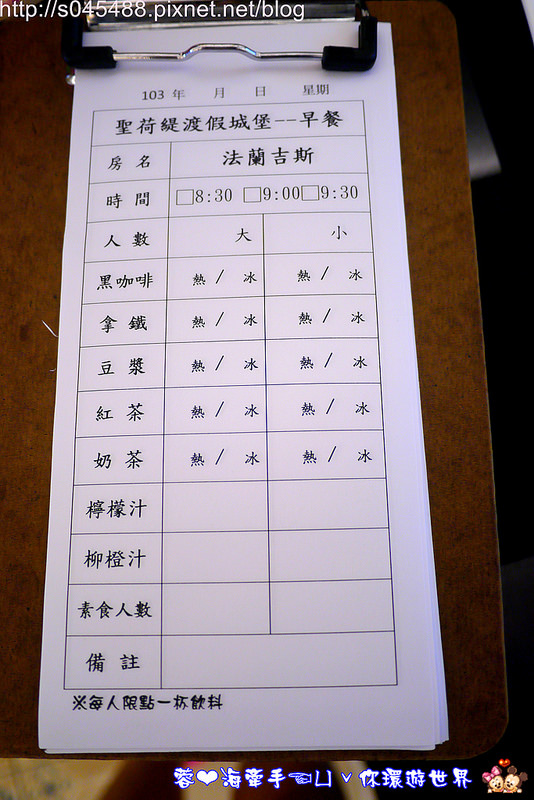 http://s045488.pixnet.net/blog
103 年 月 日 星期
聖荷緹渡假城堡--早餐
房名 法蘭吉斯
時間 □8:30 □9:00□9:30
人數 大 小
黑咖啡 熱 / 冰 熱 / 冰
拿鐵 熱 / 冰 熱 / 冰
豆漿 熱 / 冰 熱 / 冰
紅茶 熱 / 冰 熱 / 冰
奶茶 熱 / 冰 熱 / 冰
檸檬汁
柳橙汁
素食人數
備註
※每人限點一杯飲料
蓉❤海牽手☜凵˅你環遊世界